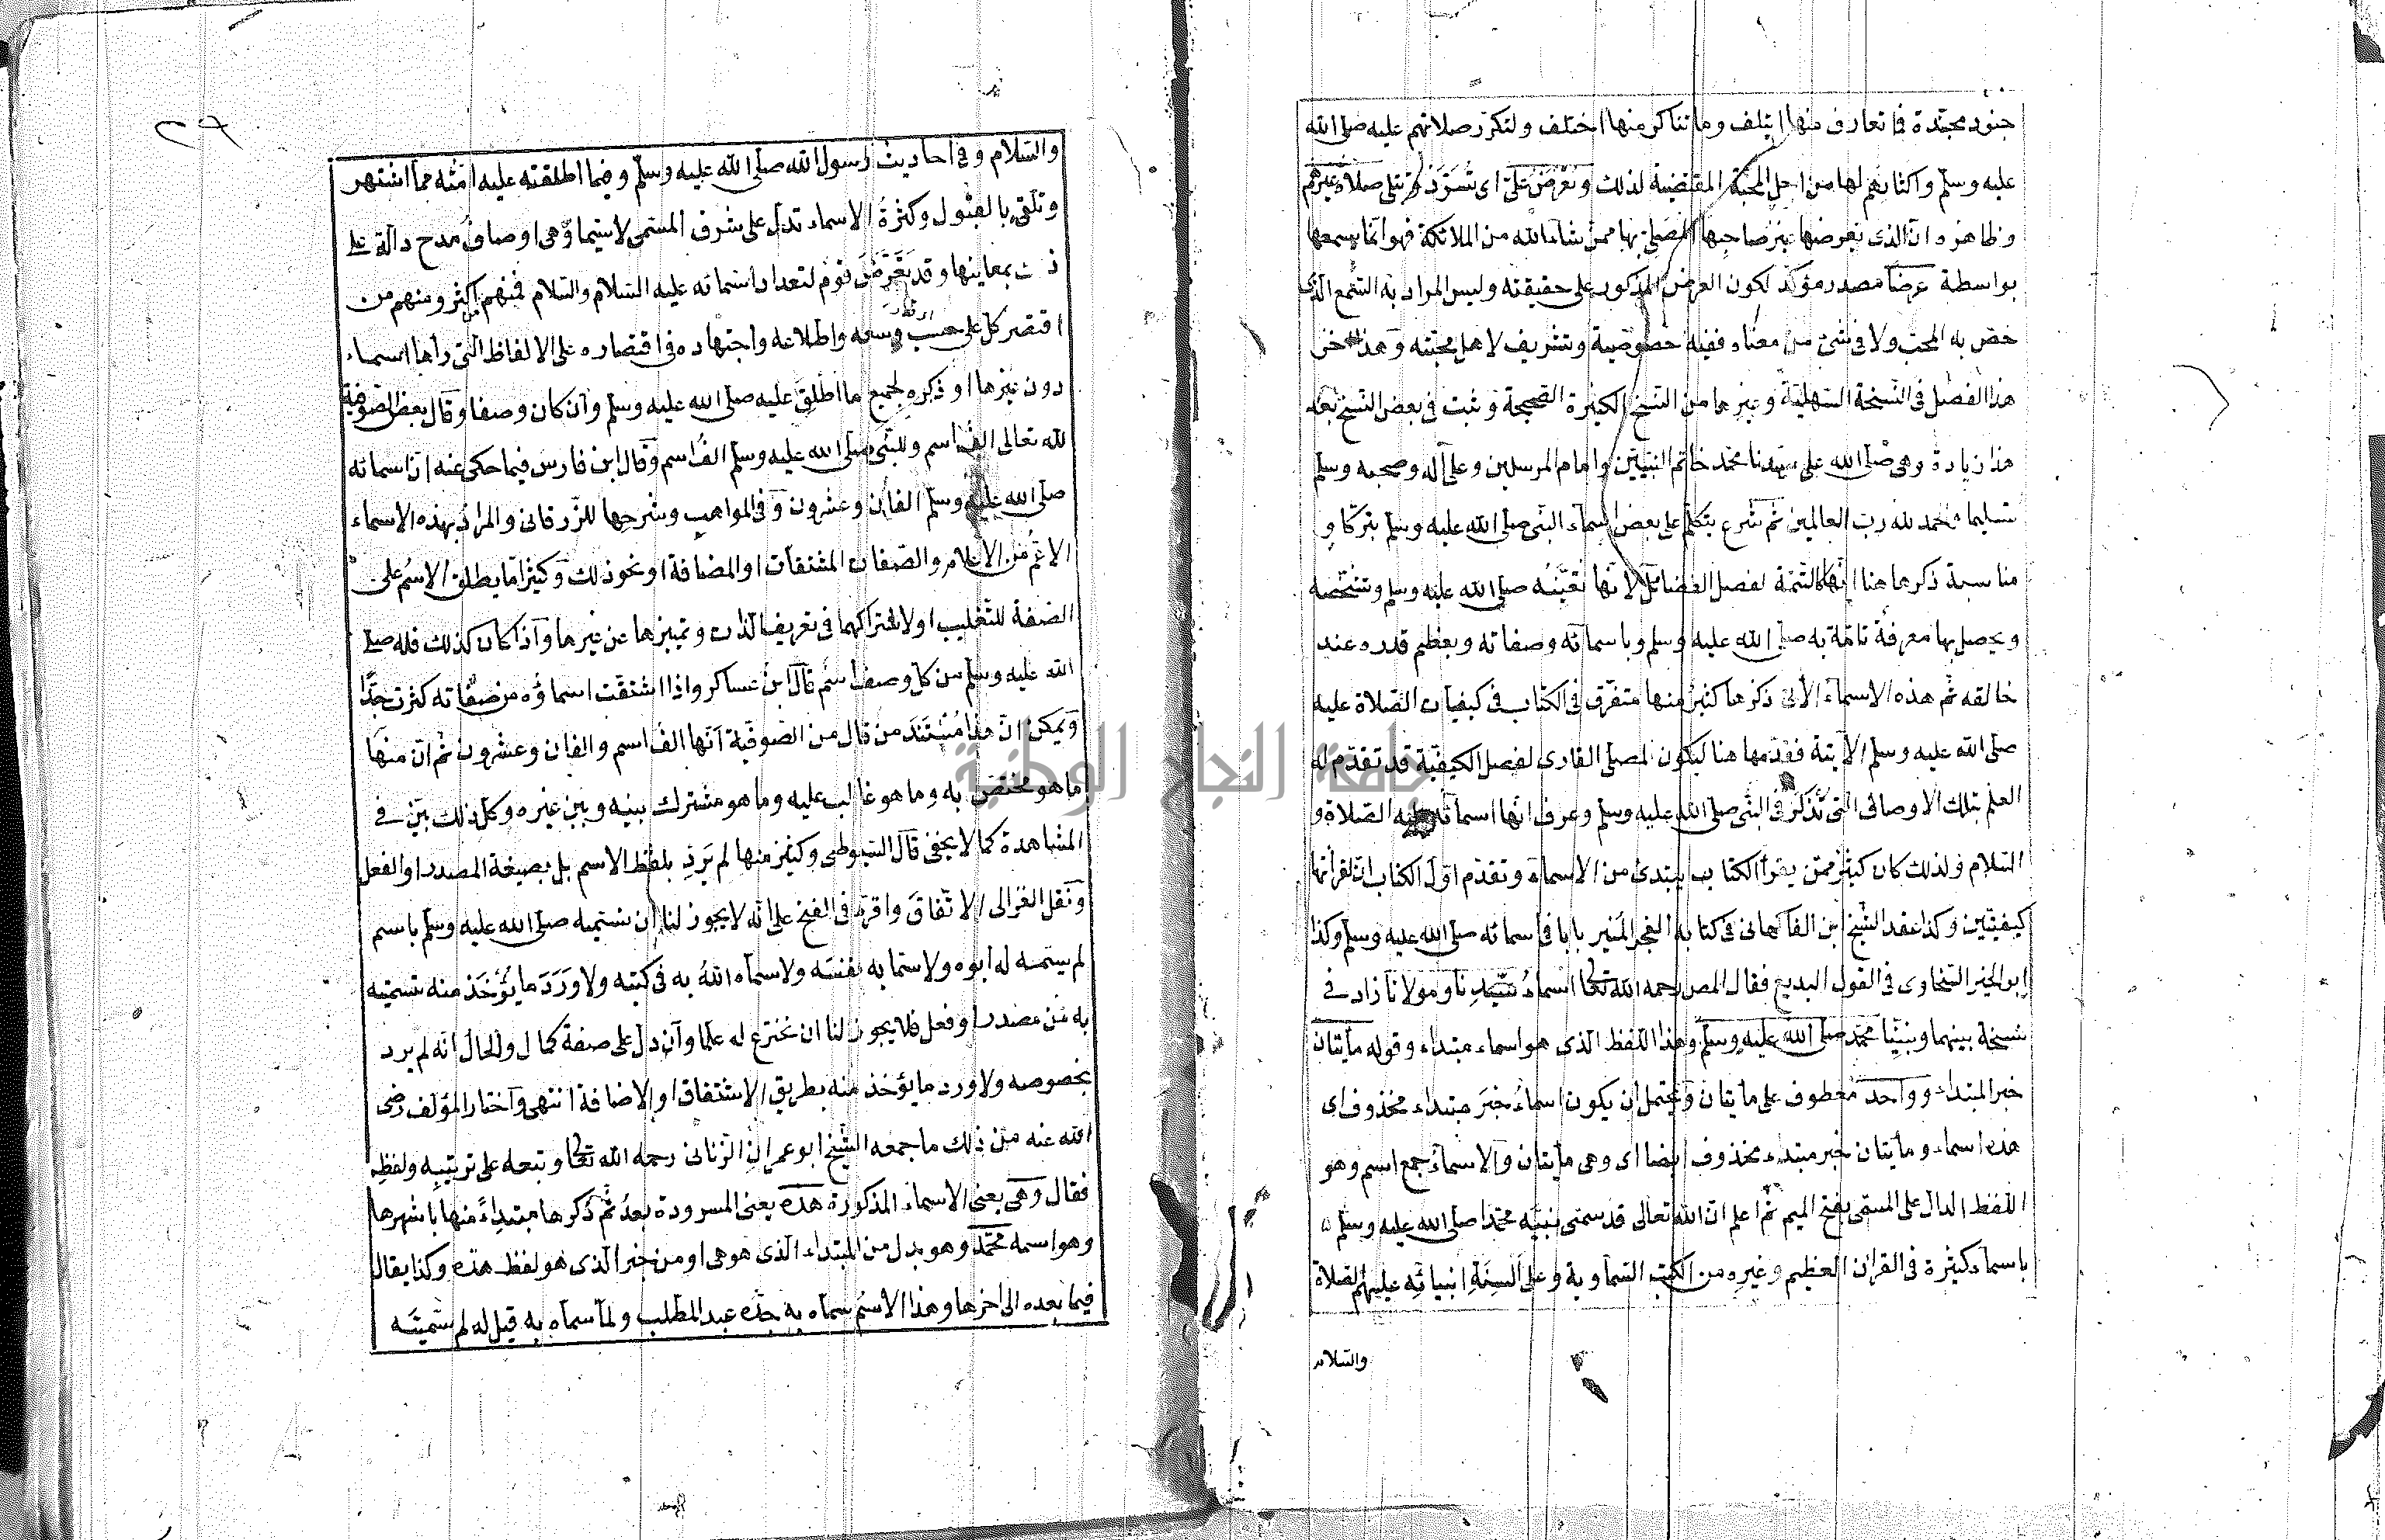 جنود مجندة فما تعارف منها ائتلف وما تناكر منها اختلف ولتكرر صلاتهم عليه صلى الله
عليه وسلم واكثارهم لها من اجل المحبة المقتضية لذلك وتعرض علىّ اى تسرد وتتلى صلاة غيرهم
وظاهره ان الذى يعرضها غير صاحبها المصلى بها ممن شاء الله من الملائكة فهو انما يسمعها
بواسطة عرضا مصدر مؤكد لكون العرض المذكور على حقيقته وليس المراد به السمع الذى
خص به المحب ولا فى شئ من معناه ففيه خصوصية وتشريف لاهل محبته وهذا اخر
هذا الفصل فى النسخة السهلية وغيرها من النسخ الكثيرة الصحيحة وثبت فى بعض النسخ بعد
هذا زيادة وهى صلى الله على سيدنا محمد خاتم النبيين وامام المرسلين وعلى آله وصحبه وسلم
تسليما والحمد لله رب العالمين ثم شرع يتكلم على بعض اسماء النبى صلى الله عليه وسلم تبركا و
مناسبة ذكرها هنا انها كالتتمة لفصل الفضائل لانها تعيّنه صلى الله عليه وسلم وتشخّصه
ويحصل بها معرفة تامة به صلى الله عليه وسلم وباسمائه وصفاته وبعظيم قدره عند
خالقه ثم هذه الاسماء الآتى ذكرها كثير منها متفرق فى الكتاب فى كيفيات الصلاة عليه
صلى الله عليه وسلم الآتية فقدمها هنا ليكون المصلى القارى لفصل الكيفية قد تقدم له
العلم بتلك الاوصاف التى تذكر فى النبى صلى الله عليه وسلم وعرف انها اسمائه عليه الصلاة و
السلام ولذلك كان كثير ممن يقرأ الكتاب يبتدئ من الاسماء وتقدم اول الكتاب ان لقرأتها
كيفيتين وكذا عقد الشيخ ابن الفاكهانى فى كتابه الفجر المنير بابا فى اسمائه صلى الله عليه وسلم وكذا
ابو الخير السخاوى فى القول البديع فقال المص رحمه الله تعالى اسماء سيدنا ومولانا زاد فى
نسخة بينهما ونبينا محمد صلى الله عليه وسلم وهذا اللفظ الذى هو اسماء مبتداء وقوله مايتان
خبر المبتداء وواحد معطوف على مايتان ويحتمل ان يكون اسماء خبر مبتداء محذوف اى
هذه اسماء ومايتان خبر مبتداء محذوف ايضا اى وهى مايتان والاسماء جمع اسم وهو
اللفظ الدال على المسمى بفتح الميم ثم اعلم ان الله تعالى قد سمى نبيّه محمدا صلى الله عليه وسلم
باسماء كثيرة فى القرآن العظيم وغيره من الكتب السماوية وعلى السنة انبيائه عليهم الصلاة
والسلام
٢٩
والسلام وفى احاديث رسول الله صلى الله عليه وسلم وفيما اطلقته عليه امته مما اشتهر
وتلقى بالقبول وكثرة الاسماء تدل على شرف المسمى لاسيما وهى اوصاف مدح دالة على
بمعاينها وقد تعرّض قوم لتعداد اسمائه عليه السلام والسلام فمنهم اكثر ومنهم من
اقتصر كل على حسب وسعه واطلاعه واجتهاده فى اقتصاره على الالفاظ التى رأها اسماء
دون غيرها او ذكره لجميع ما اطلق عليه صلى الله عليه وسلم وان كان وصفا وقال بعض الصوفية
لله تعالى الف اسم وللنبى صلى الله عليه وسلم الف اسم وقال ابن فارس فيما حكى عنه ان اسمائه
صلى الله عليه وسلم الفان وعشرون وفى المواهب وشرحها للزرقانى والمراد بهذه الاسماء
الاعم من الاعلام والصفات المشتقات او المضافة او نحو ذلك وكثيرا ما يطلق الاسم على
الصفة للتغليب او لاشتراكهما فى تعريف الذات وتمييزها عن غيرها واذا كان كذلك فله صلى
الله عليه وسلم من كل وصف اسم قال ابن عساكر واذا اشتقت اسماؤه من صفاته كثرت جدًّا
ويمكن ان هذا مستند من قال من الصوفية انها الف اسم والفان وعشرون ثم ان منها
ما هو مختص به وما هو غالب عليه وما هو مشترك بينه وبين غيره وكل ذلك بيّن فى
المشاهدة كما لا يخفى قال السيوطى وكثير منها لم يرد بلفظ الاسم بل بصيغة المصدر او الفعل
ونقل الغزالى الاتفاق واقره فى الفتح على انه لا يجوز لنا ان نسميه صلى الله عليه وسلم باسم
لم يسمه له ابوه ولا سما به نفسه ولا سماه الله به فى كتبه ولا ورد ما يؤخذ منه تسميته
به من مصدر او فعل فلا يجوز لنا ان نخترع له علما وان دل على صفة كمال والحال انه لم يرد
بخصوصه ولا ورد ما يؤخذ منه بطريق الاشتقاق او الاضافة انتهى واختار المؤلف رضى
الله عنه من ذلك ما جمعه الشيخ ابو عمران الزناتى رحمه الله تعالى وتبعه على ترتيبه ولفظه
فقال وهى يعنى الاسماء المذكورة هذه يعنى المسرودة بعد ثم ذكرها مبتدأ منها باشهرها
وهو اسمه محمد وهو بدل من المبتداء الذى هو هى او من خبر الذى هو لفظ هذه وكذا يقال
فيما بعده الى اخرها وهذا الاسم سماه به جده عبد المطلب ولما سماه به قيل له لم سميته
جامعة النجاح الوطنية